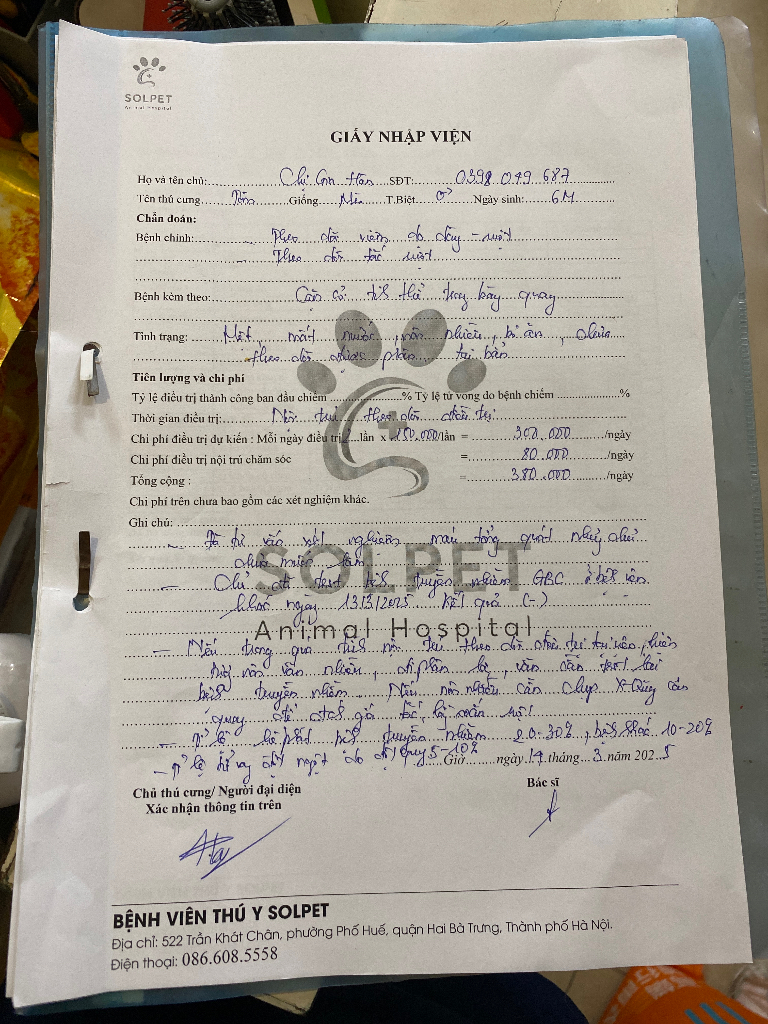 SOLPET
Animal Hospital
GIẤY NHẬP VIỆN
Họ và tên chủ: Chị SĐT: 0398 049 687
Tên thú cưng Giống Mèo T.Biệt ♂ Ngày sinh: 6M
Chẩn đoán:
Bệnh chính: Theo dõi viêm dạ dày - ruột
Theo dõi tắc ruột
Bệnh kèm theo: Cần có thể
Tình trạng: Mệt, mất nước, nôn nhiều, bỏ ăn, chưa
theo dõi được phân tại bản
Tiên lượng và chi phí
Tỷ lệ điều trị thành công ban đầu chiếm ......% Tỷ lệ tử vong do bệnh chiếm ......%
Thời gian điều trị: Nội trú theo dõi điều trị
Chi phí điều trị dự kiến : Mỗi ngày điều trị 2 lần x 150.000/lần = 300.000 /ngày
Chi phí điều trị nội trú chăm sóc = 80.000 /ngày
Tổng cộng : = 380.000 /ngày
Chi phí trên chưa bao gồm các xét nghiệm khác.
Ghi chú:
- Đã tư vấn xét nghiệm máu tổng quát nhưng chủ
chưa muốn làm
SOLPET
- Chủ đã test bệnh truyền nhiễm ở bệnh viện
khác ngày 13/3/2025 kết quả (-)
Animal Hospital
- Nếu trong quá nội trú theo dõi điều trị
nôn vẫn nhiều, đi phân vẫn cần test lại
bệnh truyền nhiễm. Nếu nôn nhiều cần chụp X-Quang cản
quang để đánh giá tắc, ruột
- Tỉ lệ bệnh truyền nhiễm 20-30%, bệnh khác 10-20%
- Tỉ lệ đột ngột do 5-10%
Giờ ngày 14 tháng 3 năm 2025
Chủ thú cưng/ Người đại diện
Xác nhận thông tin trên
Bác sĩ
BỆNH VIÊN THÚ Y SOLPET
Địa chỉ: 522 Trần Khát Chân, phường Phố Huế, quận Hai Bà Trưng, Thành phố Hà Nội.
Điện thoại: 086.608.5558